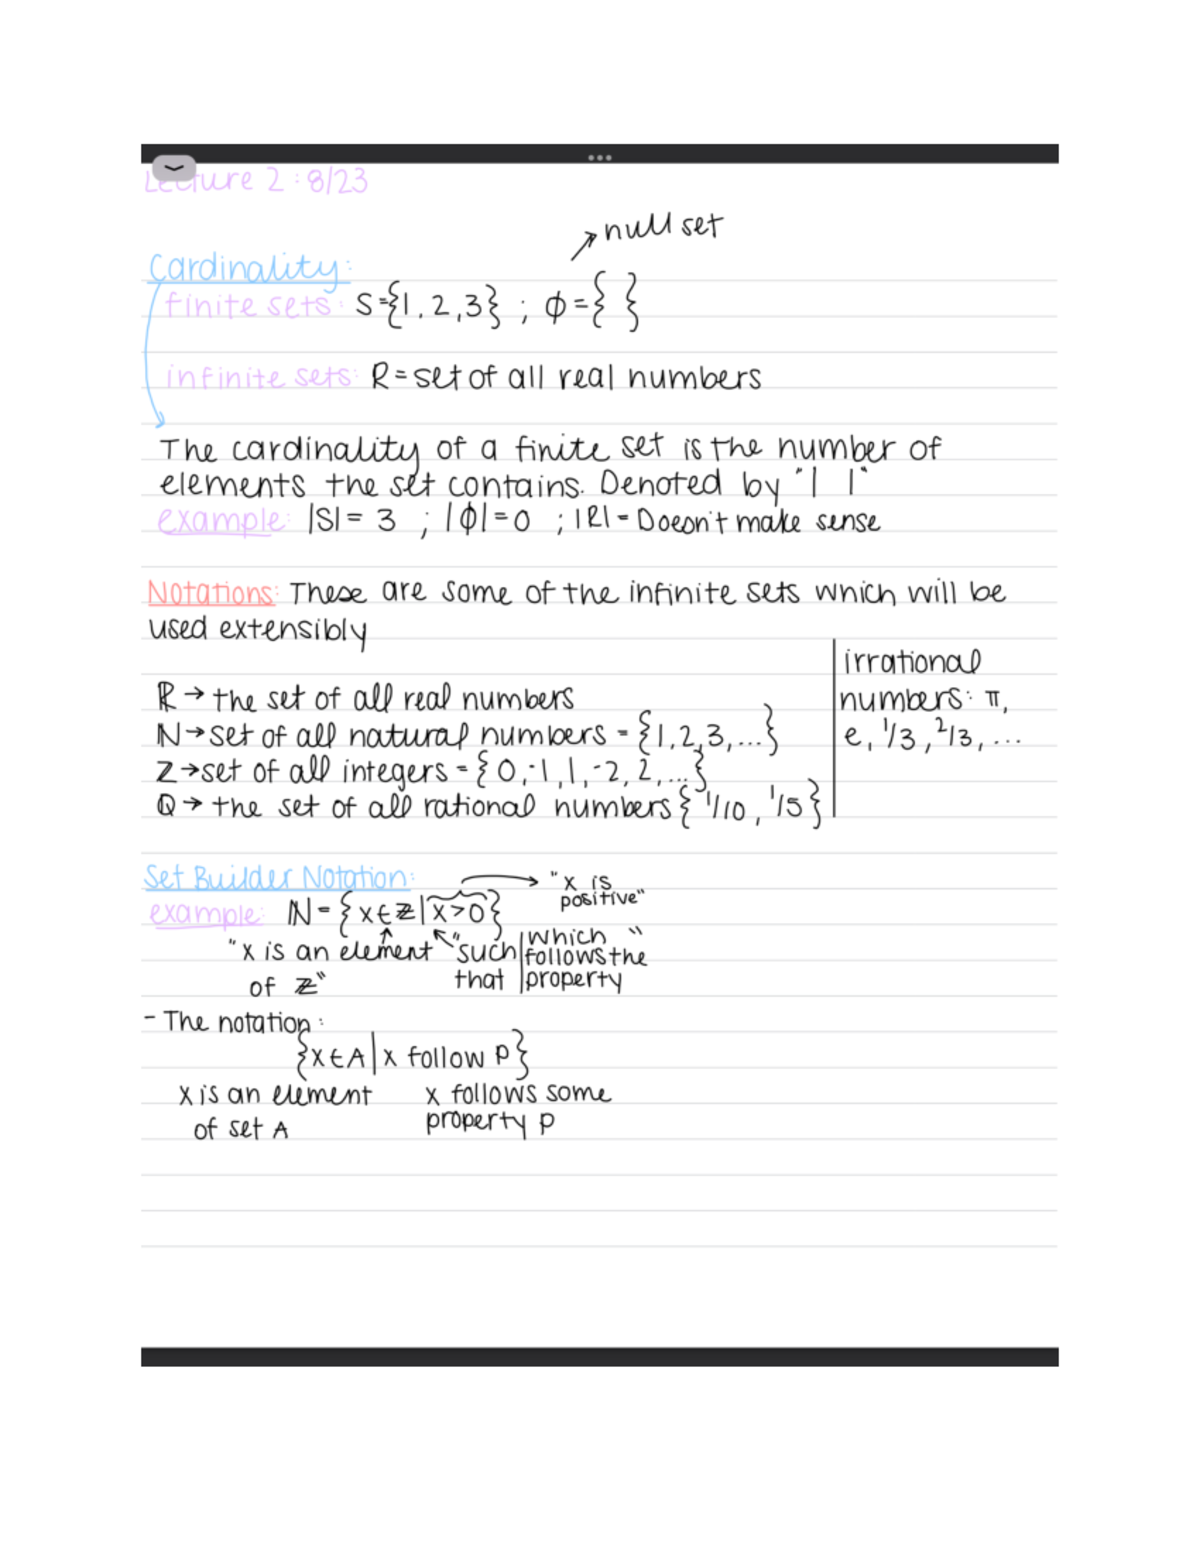 Lecture 2 : 8/23
null set
Cardinality:
finite sets: S={1, 2, 3} ; ϕ={ }
infinite sets: R = set of all real numbers
The cardinality of a finite set is the number of
elements the set contains. Denoted by "| |"
example: |S| = 3 ; |ϕ| = 0 ; |R| = Doesn't make sense
Notations: These are some of the infinite sets which will be
used extensibly
irrational
numbers: π,
e, 1/3, 2/3, ...
ℝ → the set of all real numbers
ℕ → set of all natural numbers = {1, 2, 3, ...}
ℤ → set of all integers = {0, -1, 1, -2, 2, ...}
ℚ → the set of all rational numbers {1/10, 1/5}
Set Builder Notation:
"x is
positive"
example: ℕ = {x ∈ ℤ | x > 0}
"x is an element
of ℤ"
"such
that
which "
follows the
property
- The notation:
{x ∈ A | x follow P}
x is an element
of set A
x follows some
property p